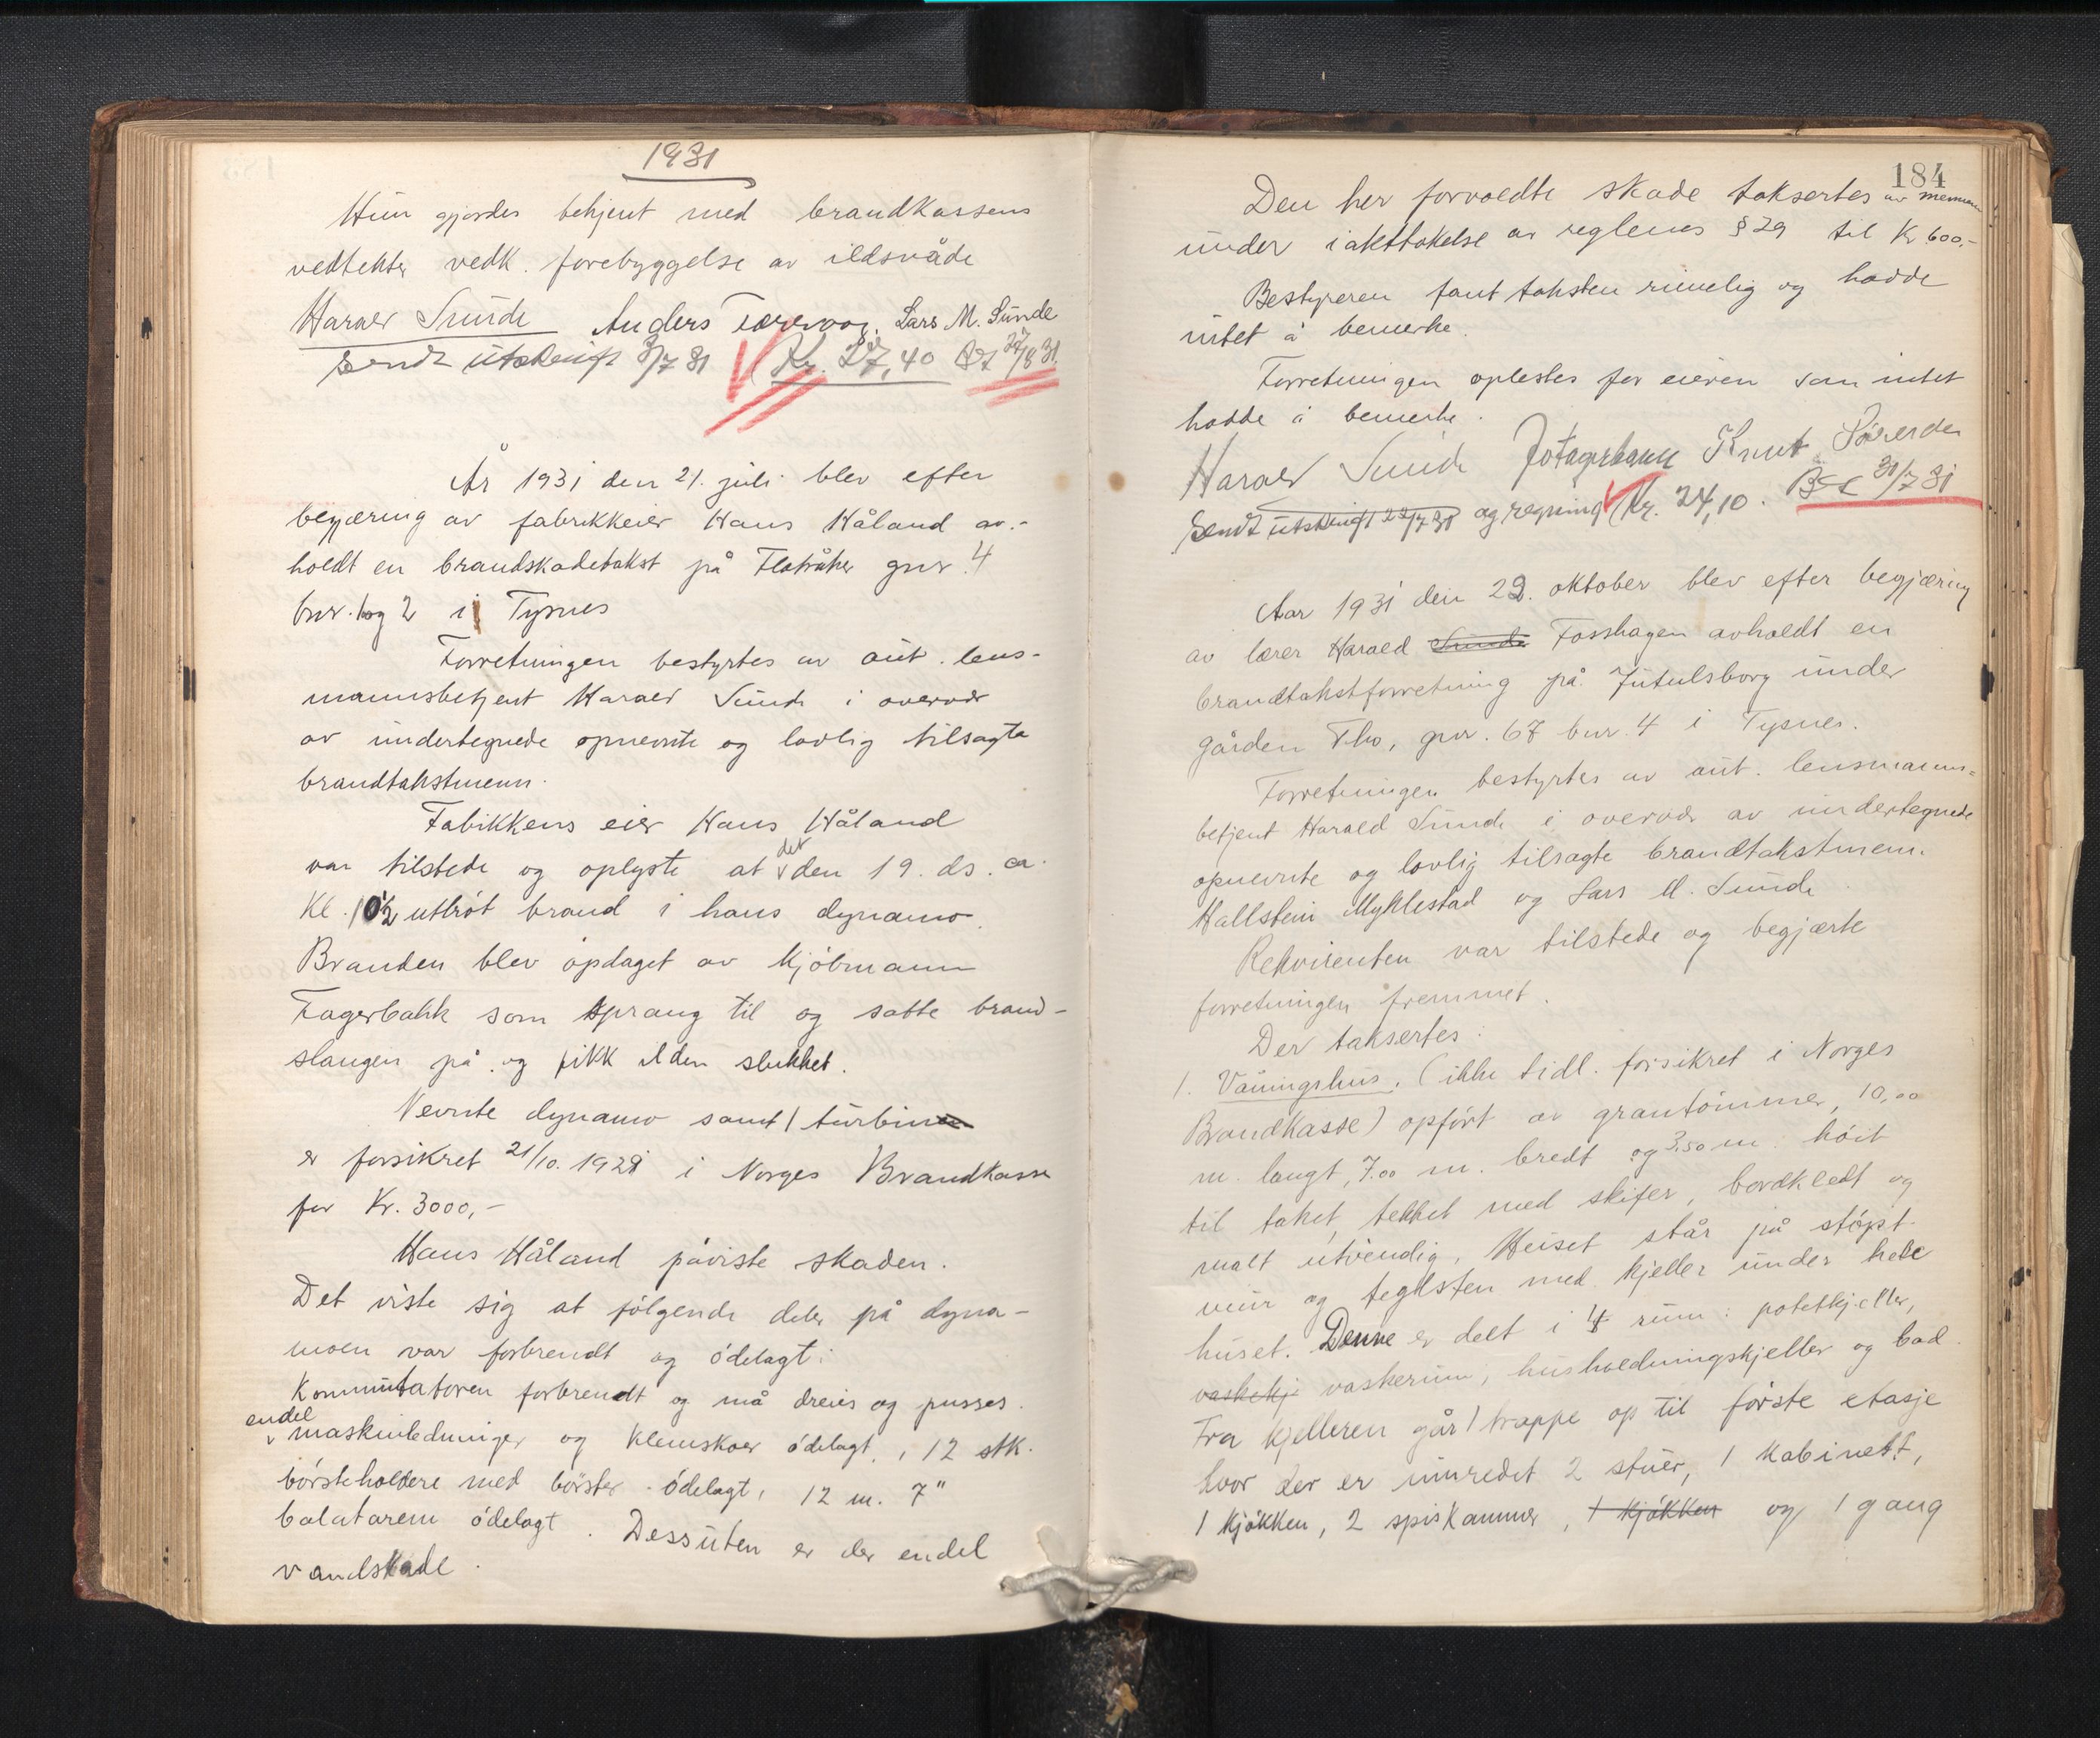 1931
Hun gjordes bekjent med brandkassens
vedtekter vedk. forebyggelse av ildsvåde
Harald Sunde Anders Lars M. Sunde
Sendt utskrift 8/7 31 Kr. 27,40 Bet 31.
År 1931 den 21. juli blev efter
begjæring av fabrikkeier Hans Håland av-
holdt en brandskadetakst på Flatråker gnr. 4
bnr. 1 og 2 i Tysnes
Forretningen bestyrtes av aut. lens-
mannsbetjent Harald Sunde i overvær
av undertegnede opnevnte og lovlig tilsagte
brandtakstmenn.
Fabikkens eier Hans Håland
var tilstede og oplyste at det den 19. ds. ca.
Kl. 10½ utbrøt brand i hans dynamo.
Branden blev opdaget av kjøbmann
Fagerbakk som sprang til og satte brand-
slangen på og fikk ilden slukket.
Nevnte dynamo samt 1 turbin
er forsikret 21/10. 1928 i Norges Brandkasse
for Kr. 3000,-
Hans Håland påviste skaden.
Det viste sig at følgende deler på dyna-
moen var forbrendt og ødelagt:
Kommutatoren forbrendt og må dreies og pusses.
endel maskinledninger og klemskoer ødelagt, 12 stk.
børsteholdere med børster ødelagt, 12 m. 7"
balatarem ødelagt. Dessuten er der endel
vandskade.
184
Den her forvoldte skade taksertes av mennene
under iakttakelse av reglenes § 29 til Kr 600,-
Bestyreren fant taksten rimelig og hadde
intet å bemerke.
Forretningen oplestes for eieren som intet
hadde å bemerke.
Harald Sunde Jo Fagerbakk Knut
Sendt utskrift 22/7 31 og regning Kr. 24,10. Bet 31/7 31
Aar 1931 den 22. oktober blev efter begjæring
av lærer Harald Sunde Fosshagen avholdt en
brandtakstforretning på Jutulsborg under
gården Tho, gnr. 67 bnr. 4 i Tysnes.
Forretningen bestyrtes av aut. lensmanns-
betjent Harald Sunde i overvær av undertegnede
opnevnte og lovlig tilsagte brandtakstmenn.
Hallstein Myklestad og Lars M. Sunde
Rekvirenten var tilstede og begjærte
forretningen fremmet.
Der taksertes:
1. Våningshus. (ikke tidl. forsikret i Norges
Brandkasse) opført av grantømmer, 10,00
m. langt, 7.00 m. bredt og 3.50 m. høit
til taket, tekket med skifer, bordkledt og
malt utvendig. Huset står på støpt
mur og teglsten med kjeller under hele
huset. Denne er delt i 4 rum: potetkjeller,
vaskekj vaskerum, husholdningskjeller og bad.
Fra kjelleren går 1 trappe op til første etasje
hvor der er innredet 2 stuer, 1 kabinett,
1 kjøkken, 2 spiskammer, 1 kjøkken og 1 gang